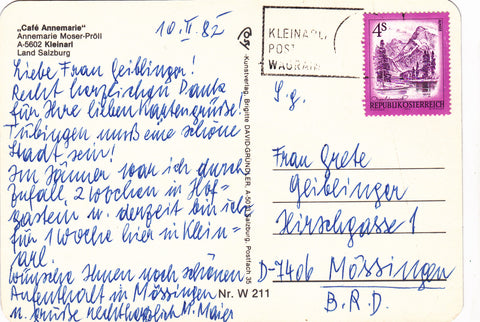 „Café Annemarie“
Annemarie Moser-Pröll
A-5602 Kleinarl
Land Salzburg
10. II. 82
Liebe Frau Geiblinger!
Recht herzlichen Dank
für Ihre lieben Kartengrüße!
Tübingen muß eine schöne
Stadt sein!
Im Jänner war ich durch
Zufall 2 Wochen in Hof-
gastein u. derzeit bin ich
für 1 Woche hier in Klein-
arl.
Wünsche Ihnen noch schönen
Aufenthalt in Mössingen
u. grüße recht herzlich M. Maier
Kunstverlag, Brigitte DAVID-GRÜNDLER, A-5013 Salzburg, Postfach 35
Nr. W 211
KLEINARL
POST
WAGRAIN
4S
REPUBLIK ÖSTERREICH
S. g.
Frau Grete
Geiblinger
Hirschgasse 1
D-7406 Mössingen
B.R.D.